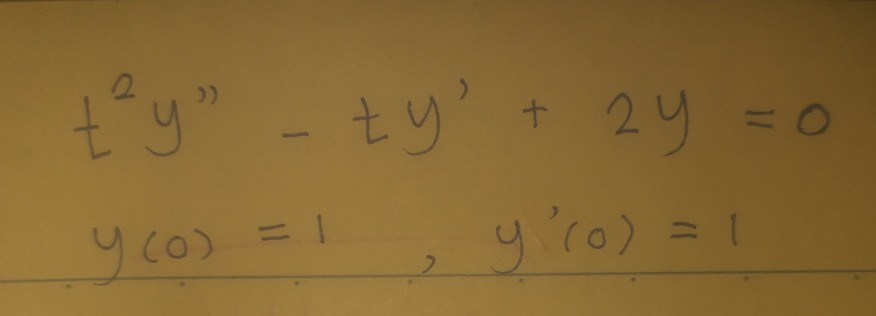 t²y" - ty' + 2y = 0
y(0) = 1 , y'(0) = 1